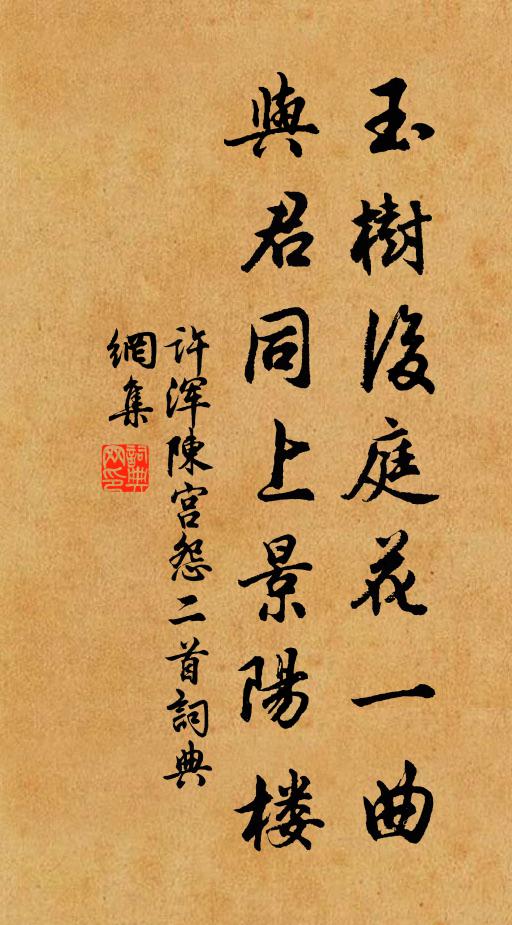 玉樹後庭花一曲
與君同上景陽楼
许浑陳宫怨二首詞典
網集
詞典
网印